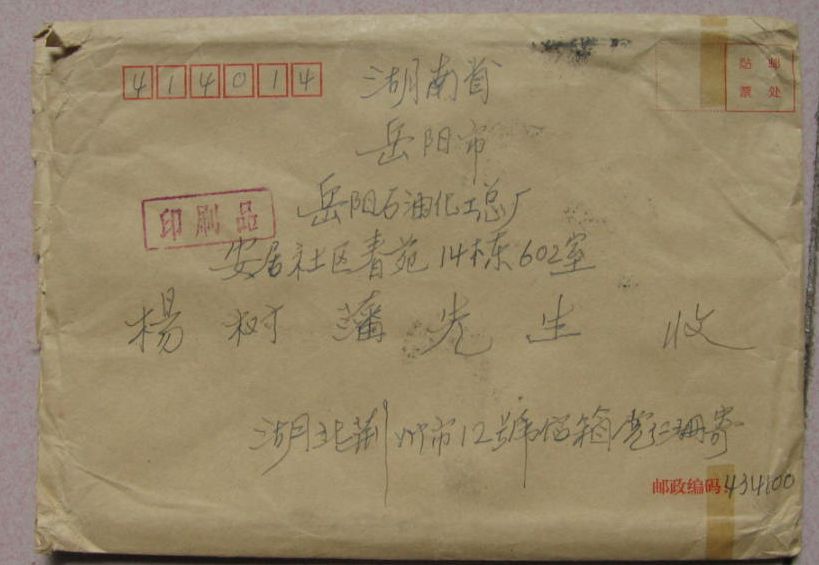 414014
湖南省
贴 邮
票 处
岳阳市
岳阳石油化工总厂
印刷品
安居社区青苑14栋602室
杨树藩先生 收
湖北荆州市12號信箱 寄
邮政编码 434100